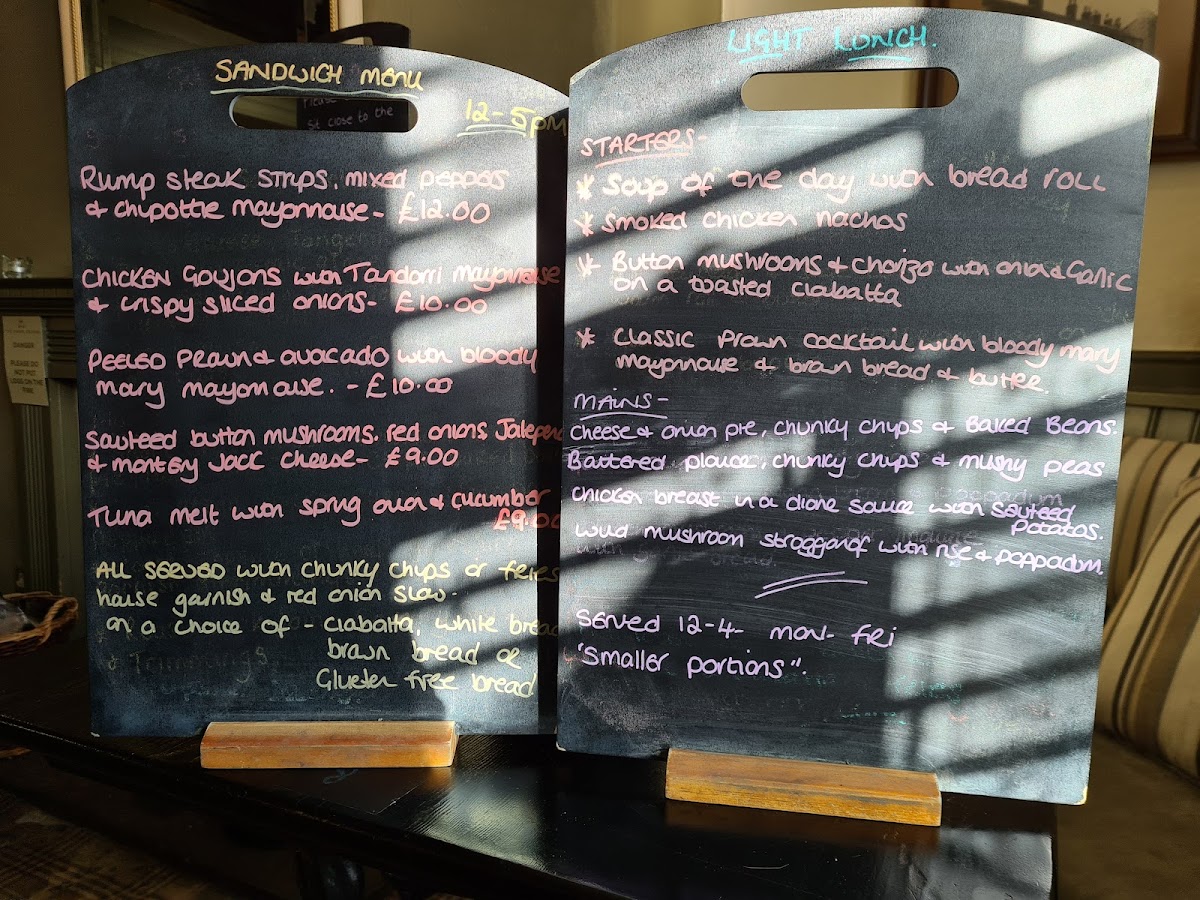 SANDWICH MENU
12-5pm
Rump steak strips, mixed peppers
& chipottle mayonnaise - £12.00
CHICKEN GOUJONS with Tandorri mayonnaise
& crispy sliced onions - £10.00
PEELED Prawn & avocado with bloody
mary mayonnaise. - £10.00
Sauteed button mushrooms, red onions, Jalepeno
& montery Jack cheese - £9.00
Tuna melt with spring onion & cucumber
£9.00
ALL SERVED with chunky chips or fries
house garnish & red onion slaw.
on a choice of - ciabatta, white bread
brown bread or
Glueten free bread
& Trimmings
Please
sit close to the
DANGER
PLEASE DO
NOT PUT
LOGS ON THE
FIRE
LIGHT LUNCH.
STARTERS -
* Soup of the day with bread roll
* Smoked chicken nachos
* Button mushrooms & chorizo with onion & Garlic
on a toasted ciabatta
* Classic prawn cocktail with bloody mary
mayonnaise & brown bread & butter
MAINS -
Cheese & onion pie, chunky chips & Baked Beans.
Battered plaice, chunky chips & mushy peas
Chicken breast in a diane sauce with sauteed
potatos.
wild mushroom strogganof with rise & poppadum.
Served 12-4 - mon - fri
"Smaller portions".